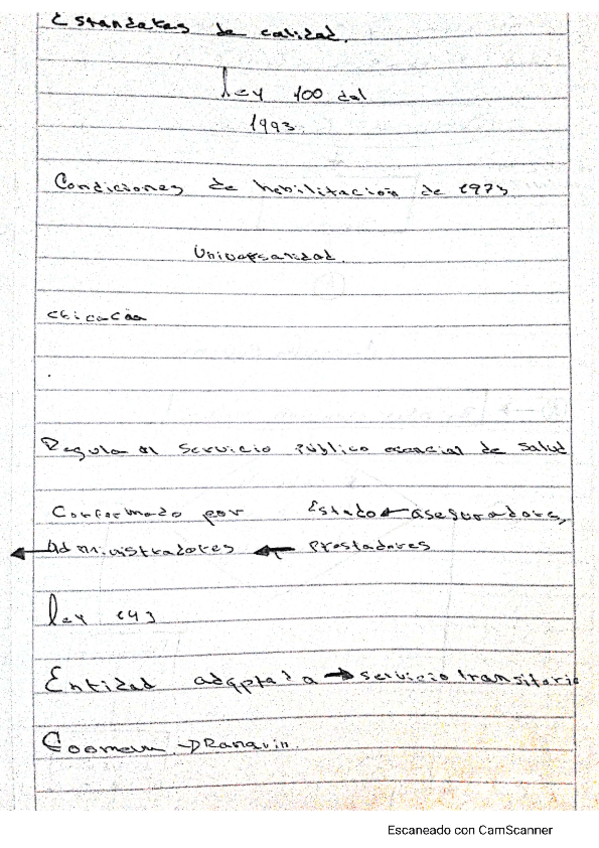 Estandares de calidad.
ley 100 del
1993.
Condiciones de habilitacion de 1973
Universalidad.
eficacia
Regula el servicio público esencial de salud
Conformado por Estado ← aseguradores,
← Administradores ← Prestadores
ley
Entidad adaptada → servicio transitorio
Coomeva →
Escaneado con CamScanner